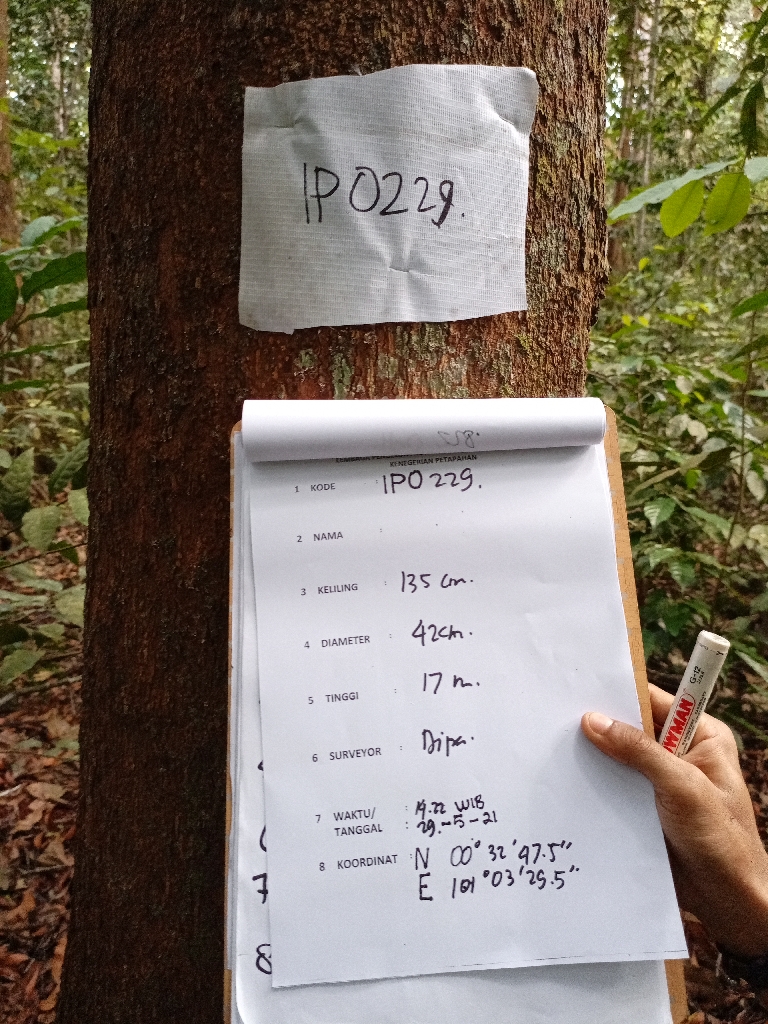 IPO229.
KENEGERIAN PETAPAHAN
1 KODE : IPO 229.
2 NAMA :
3 KELILING : 135 cm.
4 DIAMETER : 42cm.
5 TINGGI : 17 m.
6 SURVEYOR : Dipa.
7 WAKTU/ : 14.22 WIB
TANGGAL : 29-5-21
8 KOORDINAT : N 00° 32' 47.5"
E 101° 03' 29.5"
7
8
G-12
OWMAN